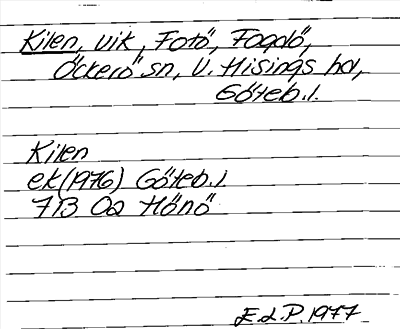 Kilen, vik, Fotö, Fogdö,
Öckerö sn, V. Hisings hd,
Göteb. l.
Kilen
ek (1976) Göteb. l.
7B 0a Hönö
E.L.P. 1977